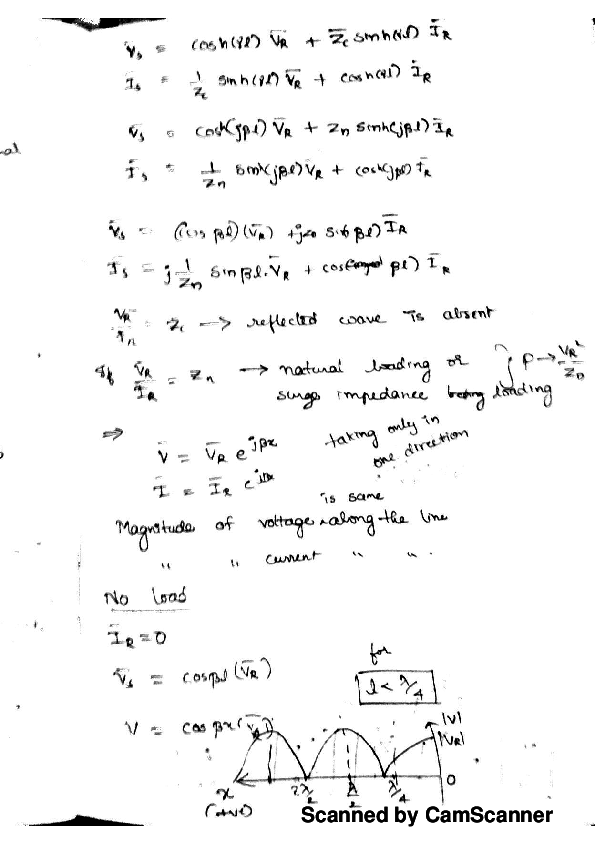 V̄s = cosh(γl) V̄R + Z̄c sinh(γl) ĪR
Īs = 1/Zc sinh(γl) V̄R + cosh(γl) ĪR
V̄s = cosh(jβl) V̄R + Zn sinh(jβl) ĪR
Īs = 1/Zn sinh(jβl) V̄R + cosh(jβl) ĪR
V̄s = (cos βl) (V̄R) + j sin βl) ĪR
Īs = j 1/Zn sin βl . V̄R + cos βl) ĪR
= Zc → reflected wave is absent
If V̄R/ĪR = Zn → natural loading or
surge impedance loading
P → VR²/Zn
⇒
V̄ = V̄R e^jβx
taking only in
one direction
Ī = ĪR e^jβx
is same
Magnitude of voltage along the line
" " current " " .
No Load
ĪR = 0
V̄s = cosβl (V̄R)
for
l < λ/4
V = cos βx (V̄R)
|V|
|VR|
x
λ/2
λ/4
0
Scanned by CamScanner